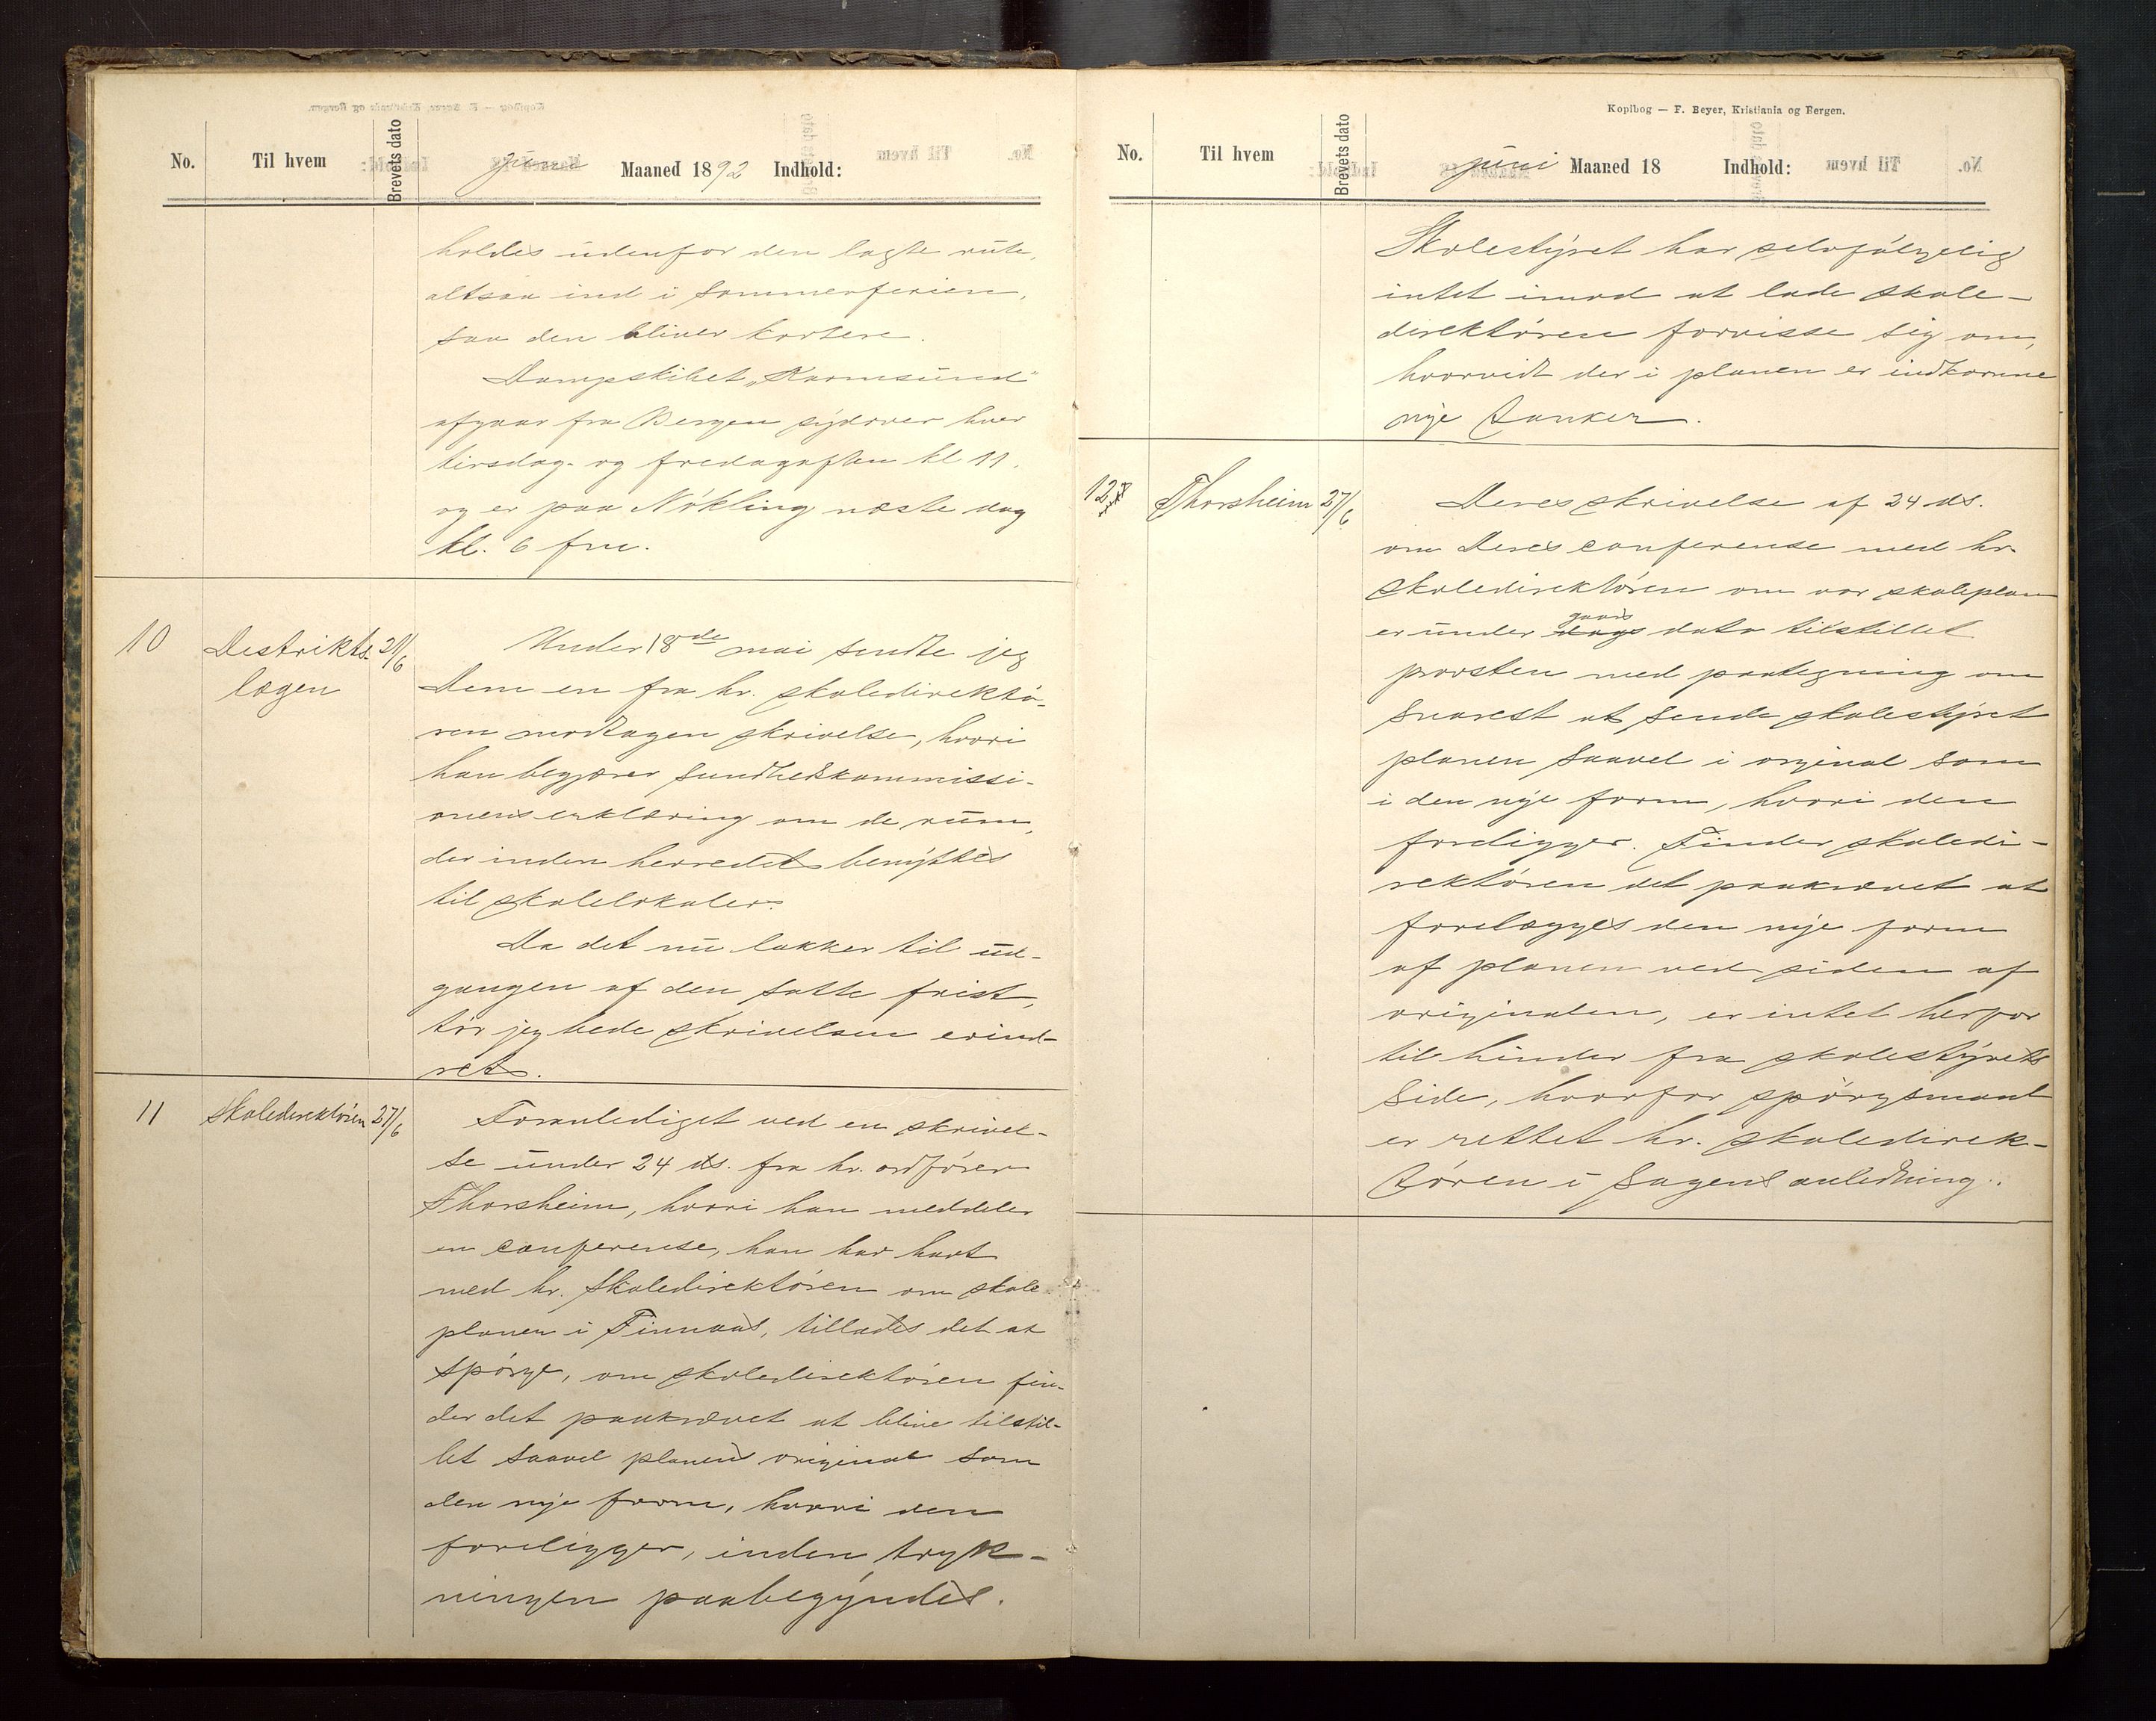 No. Til hvem Brevets dato Maaned 1892 Indhold:
holdes udenfor den lagte rute,
altsaa ind i sommerferien,
saa den bliver kortere.
Dampskibet "Karmsund"
afgaar fra Bergen sydover hver
tirsdag- og fredagaften kl 11.
og er paa Nökling næste dag
kl. 6 fm.
10 Destrikts- 21/6 Under 18de mai sendte jeg
lægen Dem en fra hr. skoledirektö-
ren modtagen skrivelse, hvori
han begjærer sundhedskommissi-
onens erklæring om de rum,
der inden herredet benyttes
til skolelokaler.
Da det nu lakker til ud-
gangen af den satte frist,
tör jeg bede skrivelsen erind-
ret.
11 Skoledirektören 27/6 Foranlediget ved en skrivel-
se under 24 ds. fra hr. ordförer
Thorsheim, hvori han meddeler
en conferense, han har havt
med hr. Skoledirektören om skole
planen i Finnaas, tillades det at
spörge, om skoledirektören fin-
der det paakrævet at blive tilstil-
let saavel planens original som
den nye form, hvori den
foreligger, inden tryk-
ningen paabegyndes.
Kopibog — F. Beyer, Kristiania og Bergen.
No. Til hvem Brevets dato juni Maaned 18 Indhold:
Skolestyret har selvfölgelig
intet imod at lade skole-
direktören forvisse sig om,
hvorvidt der i planen er indkomne
nye tanker.
12 Thorsheim 27/6 Deres skrivelse af 24 ds.
om Deres conferense med hr.
skoledirektören om vor skoleplan
gaars
er under dags dato tilstillet
provsten med paategning om
snarest at sende skolestyret
planen saavel i orginal som
i den nye form, hvori den
foreligger. Finder skoledi-
rektören det paakrævet at
forelægges den nye form
af planen ved siden af
originalen, er intet herfor
til hinder fra skolestyrets
side, hvorfor spörgsmaal
er rettet hr. skoledirek-
tören i sagens anledning.